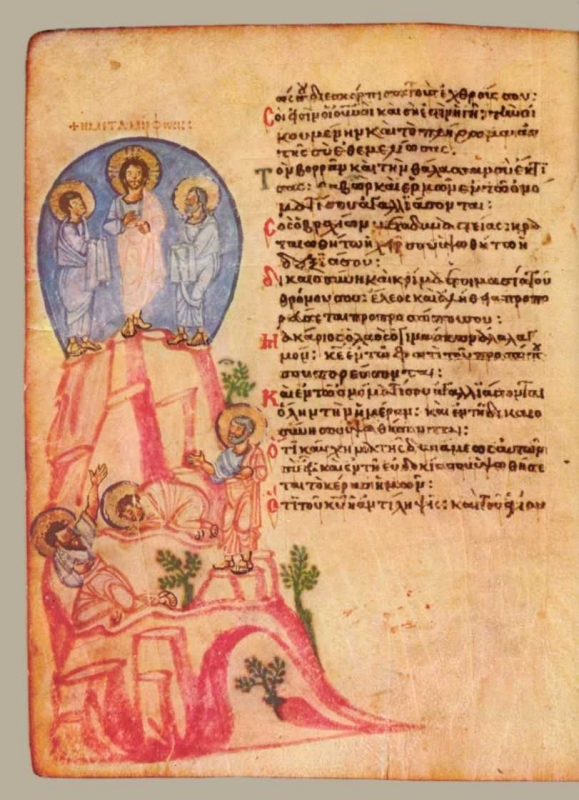 + Η ΜΕΤΑΜΟΡΦΩΣΙΣ
διεσκόρπισας τοὺς ἐχθρούς σου:
Σοί εἰσιν οἱ οὐνοι καὶ σή ἐστιν ἡ γῆ: τὴν οἰ
κουμένην καὶ τὸ πλήρωμα αὐ
τῆς σὺ ἐθεμελίωσας:
Τὸν βορρᾶν καὶ τὴν θάλασσαν σὺ ἔκτι
σας: θαβὼρ καὶ ἑρμὼν ἐν τῷ ὀνό
ματί σου ἀγαλλιάσονται:
Σὸς ὁ βραχίων μετὰ δυναστείας: κρα
ταιωθήτω ἡ χείρ σου ὑψωθήτω ἡ
δεξιά σου:
Δικαιοσύνη καὶ κρίμα ἑτοιμασία τοῦ
θρόνου σου: ἔλεος καὶ ἀλήθεια προπο
ρεύσεται πρὸ προσώπου σου:
Μακάριος ὁ λαὸς ὁ γινώσκων ἀλαλαγ
μόν: κε ἐν τῷ φωτὶ τοῦ προσώπου
σου πορεύσονται:
Καὶ ἐν τῷ ὀνόματί σου ἀγαλλιάσονται
ὅλην τὴν ἡμέραν: καὶ ἐν τῇ δικαιο
σύνῃ σου ὑψωθήσονται:
Ὅτι καύχημα τῆς δυνάμεως αὐτῶν
σὺ εἶ: καὶ ἐν τῇ εὐδοκίᾳ σου ὑψωθήσε
ται τὸ κέρας ἡμῶν:
Ὅτι τοῦ κυ ἡ ἀντίληψις: καὶ τοῦ ἁγίου